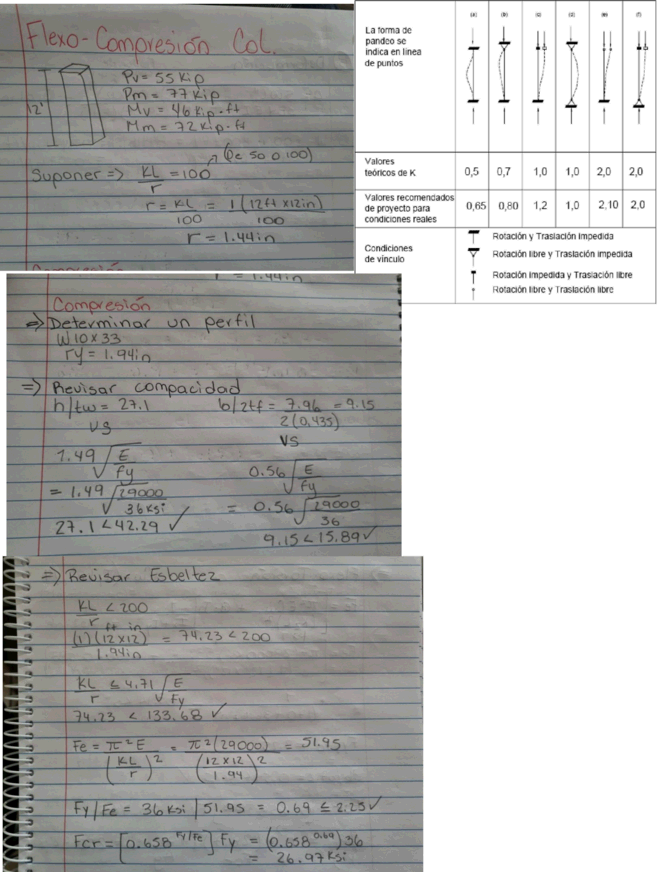 Flexo-Compresión Col.
12'
Pv = 55 Kip
Pm = 77 Kip
Mv = 46 Kip·ft
Mm = 72 Kip·ft
(De 50 a 100)
Suponer => KL/r = 100
r = KL/100 = 1(12ft x12in)/100
r = 1.44in
(a) (b) (c) (d) (e) (f)
La forma de
pandeo se
indica en línea
de puntos
Valores
teóricos de K 0,5 0,7 1,0 1,0 2,0 2,0
Valores recomendados
de proyecto para
condiciones reales 0,65 0,80 1,2 1,0 2,10 2,0
Condiciones
de vínculo
Rotación y Traslación impedida
Rotación libre y Traslación impedida
Rotación impedida y Traslación libre
Rotación libre y Traslación libre
r = 1.44in
Compresión
=> Determinar un perfil
W10x33
ry = 1.94in
=> Revisar compacidad
h/tw = 27.1
vs
1.49 √E/Fy
= 1.49 √29000/36 Ksi
27.1 < 42.29 ✓
b/2tf = 7.96/2(0.435) = 9.15
vs
0.56 √E/Fy
= 0.56 √29000/36
9.15 < 15.89 ✓
=> Revisar Esbeltez
KL/r < 200
ft in
(1)(12x12)/1.94in = 74.23 < 200
KL/r ≤ 4.71 √E/Fy
74.23 < 133.68 ✓
Fe = π²E/(KL/r)² = π²(29000)/(12x12/1.94)² = 51.95
Fy/Fe = 36 Ksi / 51.95 = 0.69 ≤ 2.25 ✓
Fcr = [0.658^Fy/Fe] Fy = (0.658^0.69) 36
= 26.97 Ksi